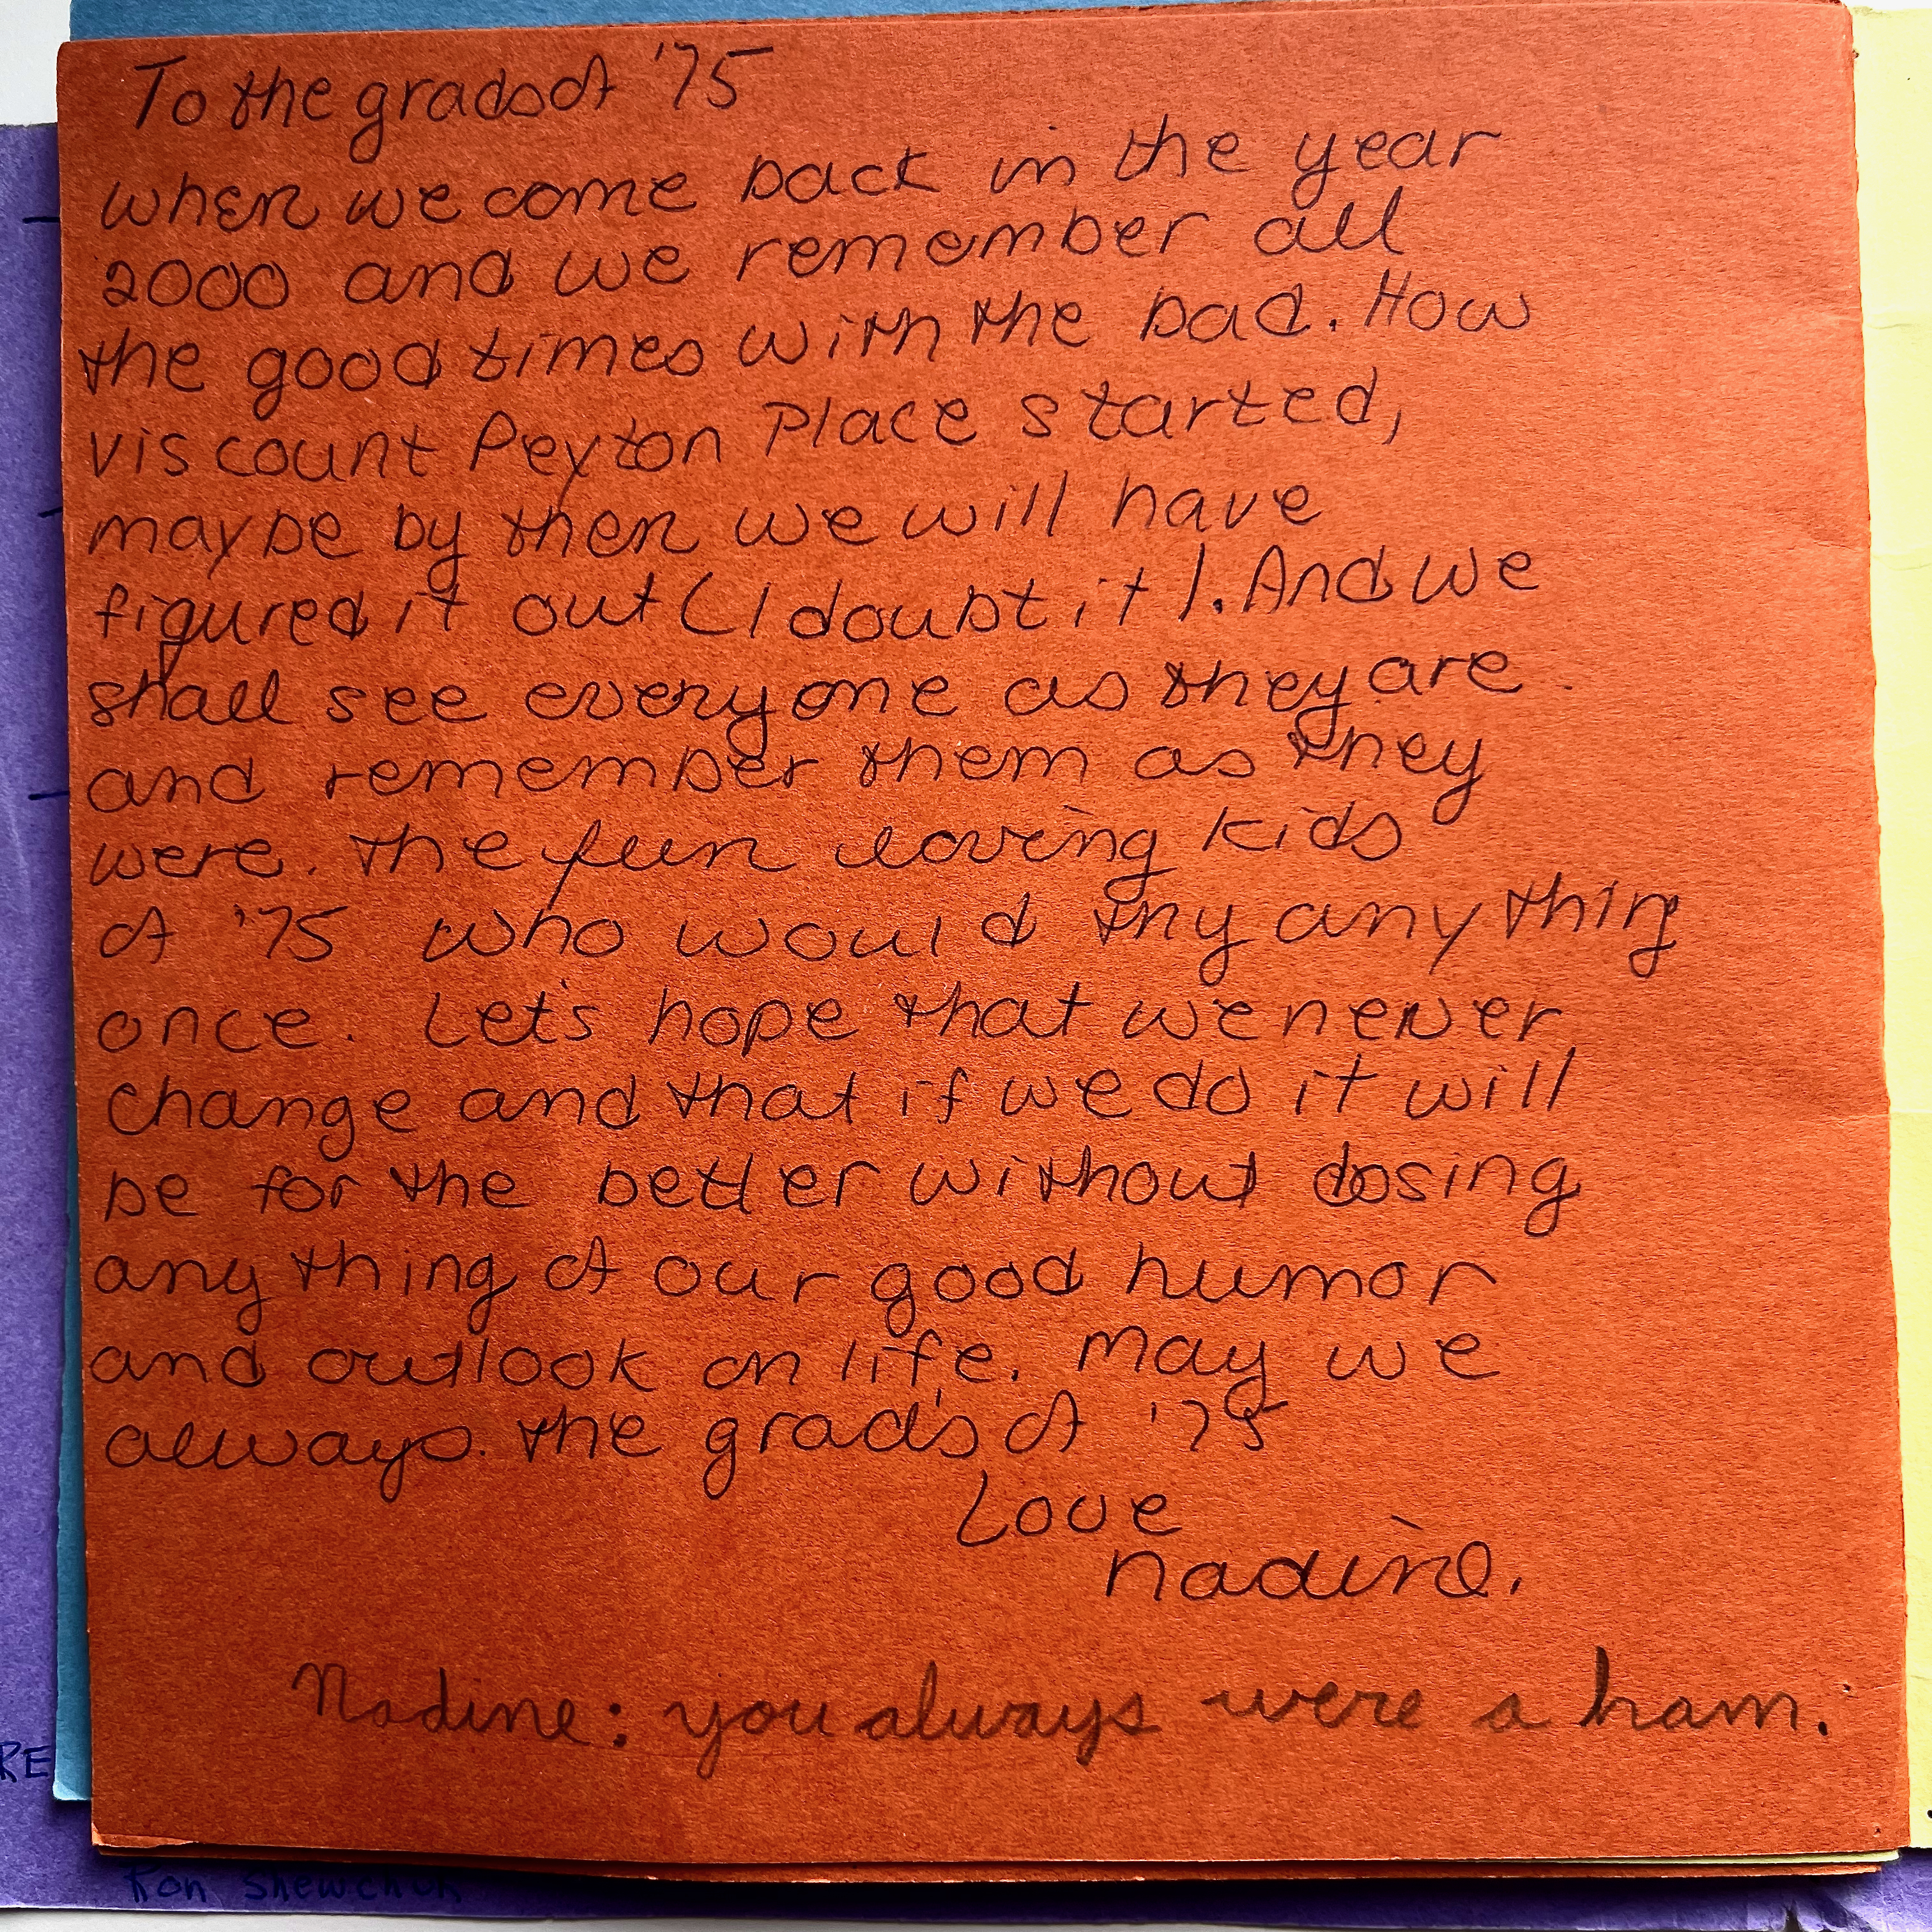 To the grads of '75
when we come back in the year
2000 and we remember all
the good times with the bad. How
viscount Peyton Place started,
maybe by then we will have
figured it out (I doubt it). And we
shall see everyone as they are
and remember them as they
were. the fun loving kids
of '75 who would try anything
once. Let's hope that we never
change and that if we do it will
be for the better without losing
anything of our good humor
and outlook on life. May we
always. the grad's of '75
Love
Nadine.
Nadine: you always were a ham.
RE
Ron Shewchuk